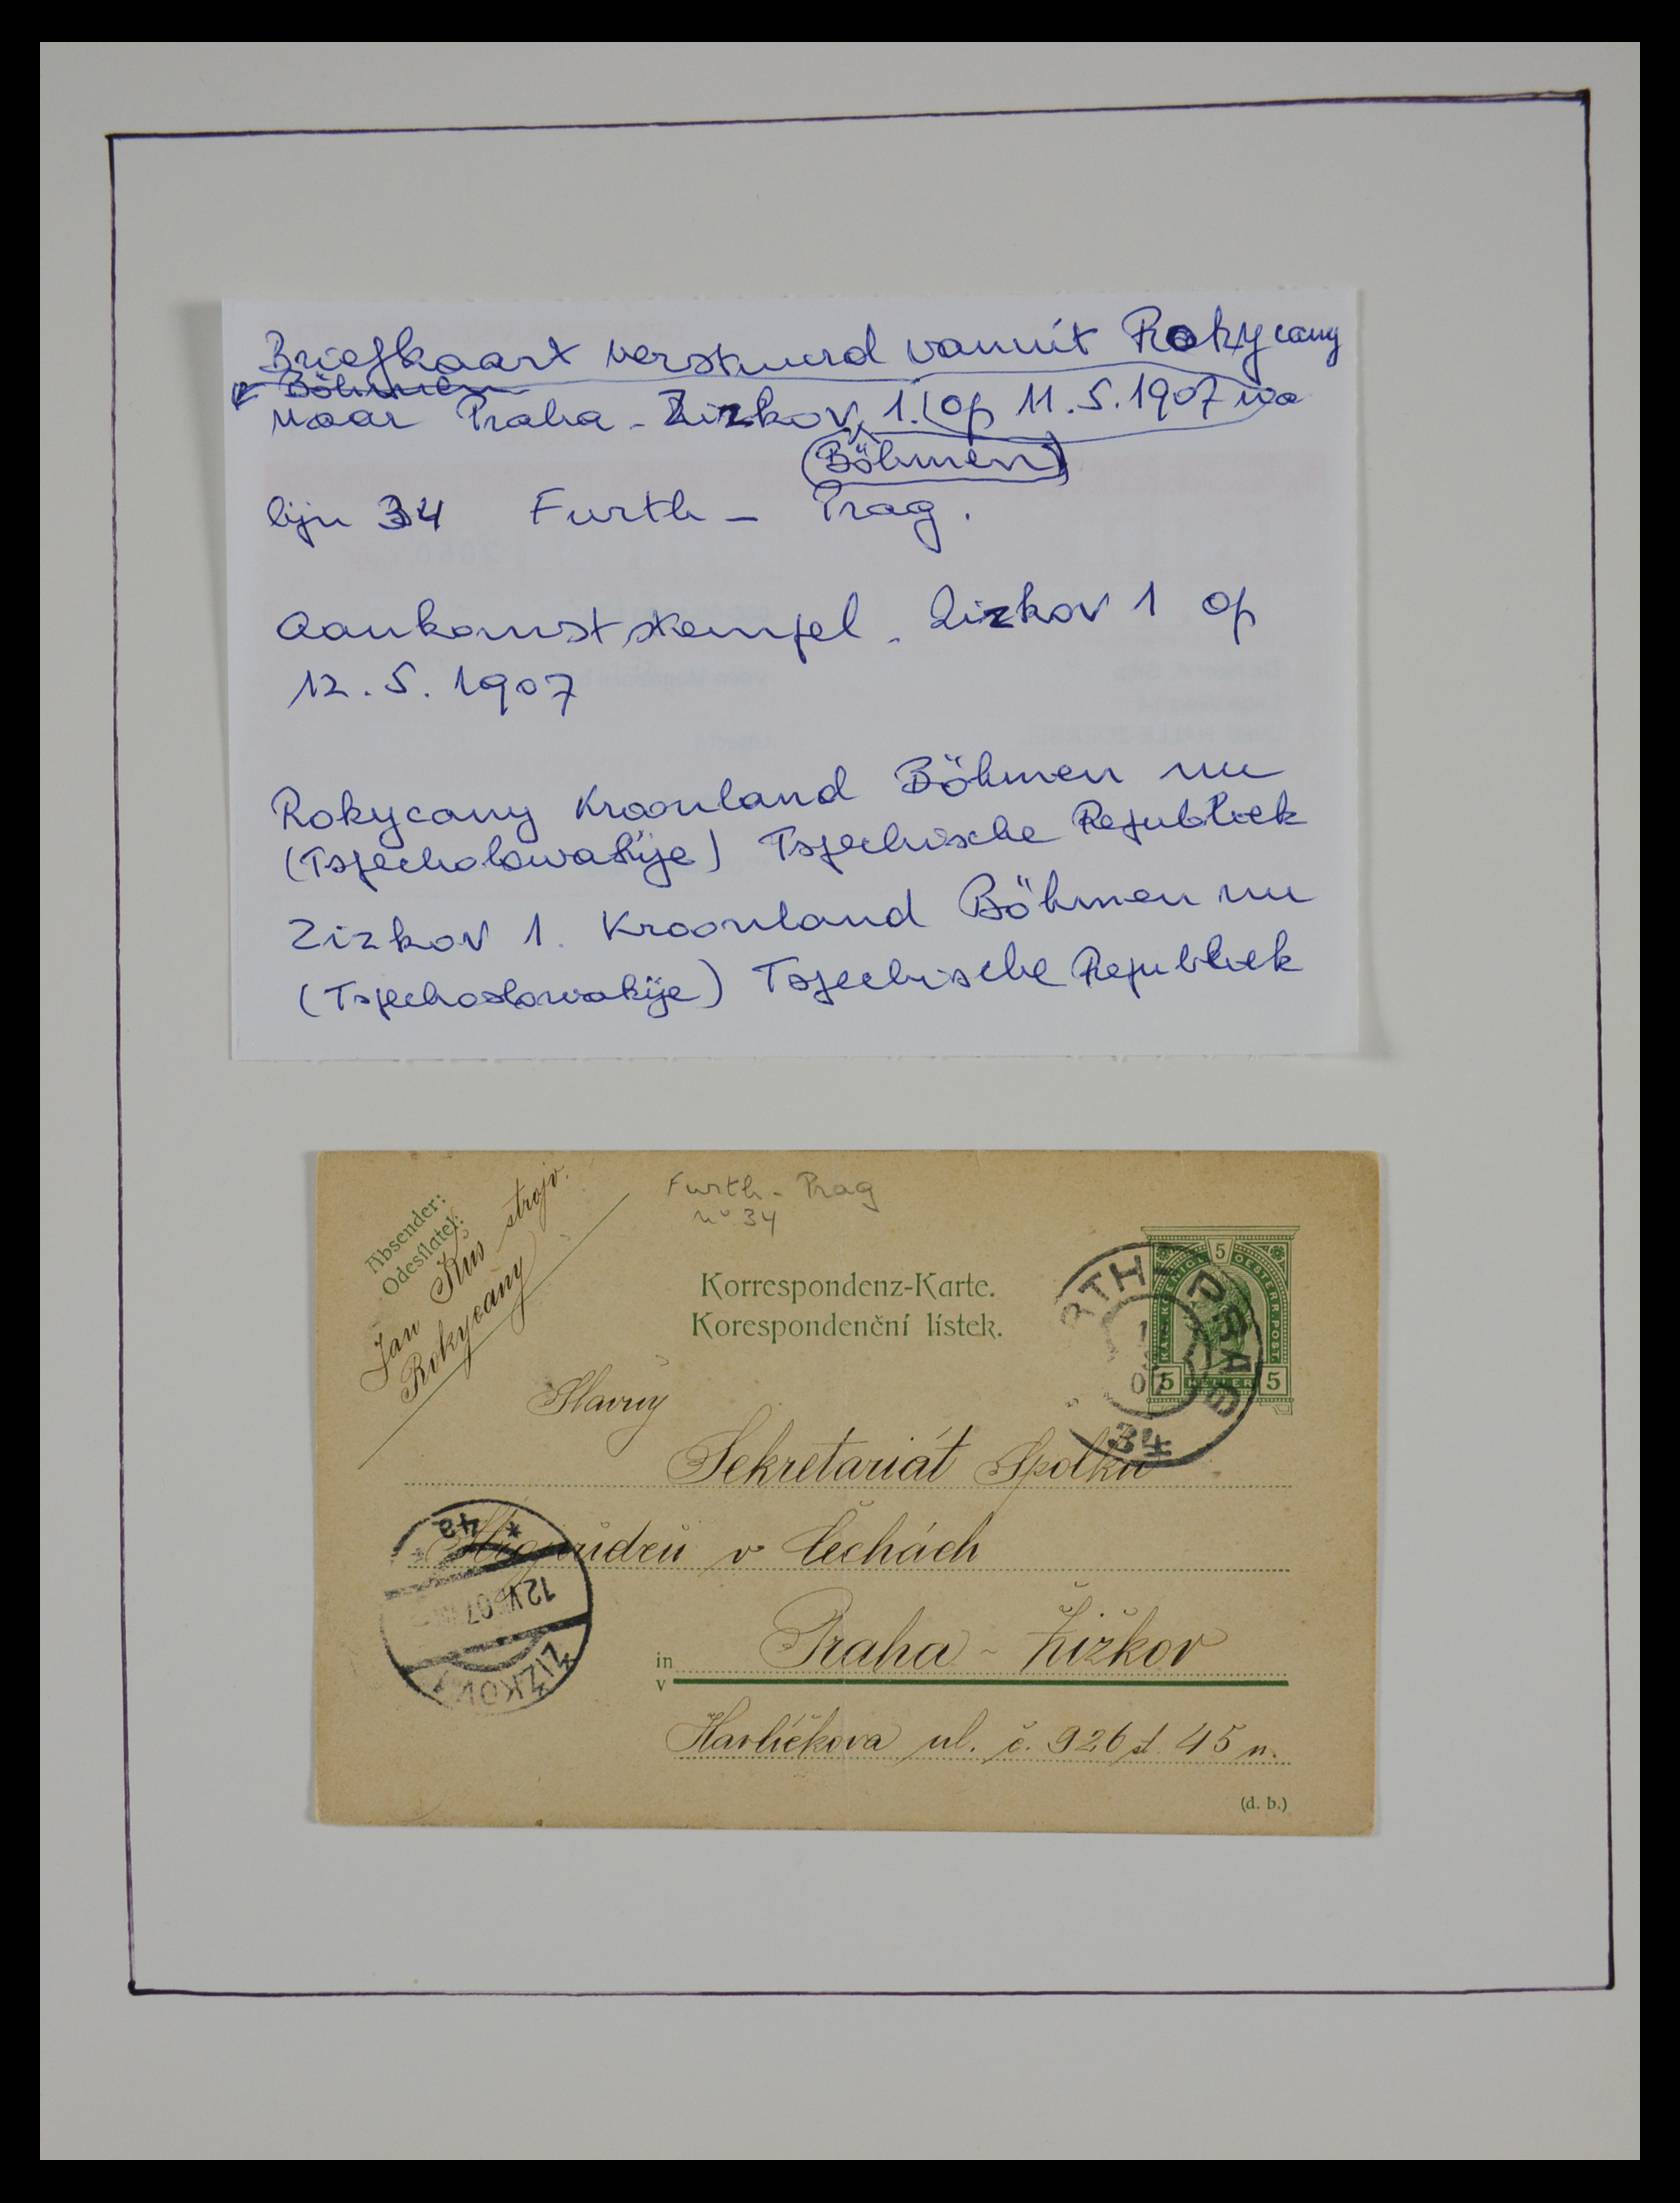 Briefkaart verstuurd vanuit Rokycany
Böhmen
naar Praha - Zizkov 1. op 11.5.1907 via
(Böhmen)
lijn 34 Furth - Prag.
Aankomststempel - Zizkov 1 op
12.5.1907
Rokycany Kroonland Böhmen nu
(Tsjechoslowakije) Tsjechische Republiek
Zizkov 1. Kroonland Böhmen nu
(Tsjechoslowakije) Tsjechische Republiek
Absender:
Odesílatel:
Jan Kus strojv.
Rokycany
Furth - Prag
n° 34
Korrespondenz-Karte.
Korespondenční lístek.
5
KAIS. KOENIGL. OESTERR. POST.
5 HELLER 5
RTH PRAG
07
34
Slavný
Sekretariát Spolku
v Čechách
4a
12 V 07
ZIZKOV
in
v
Praha - Žižkov
Havlíčkova ul. č. 926 st. 45 n.
(d. b.)